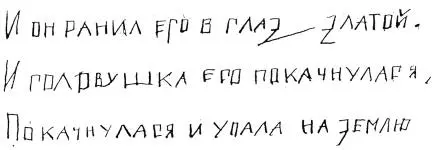 И он ранил его в глаз златой.
И головушка его покачнулася,
Покачнулася и упала на землю